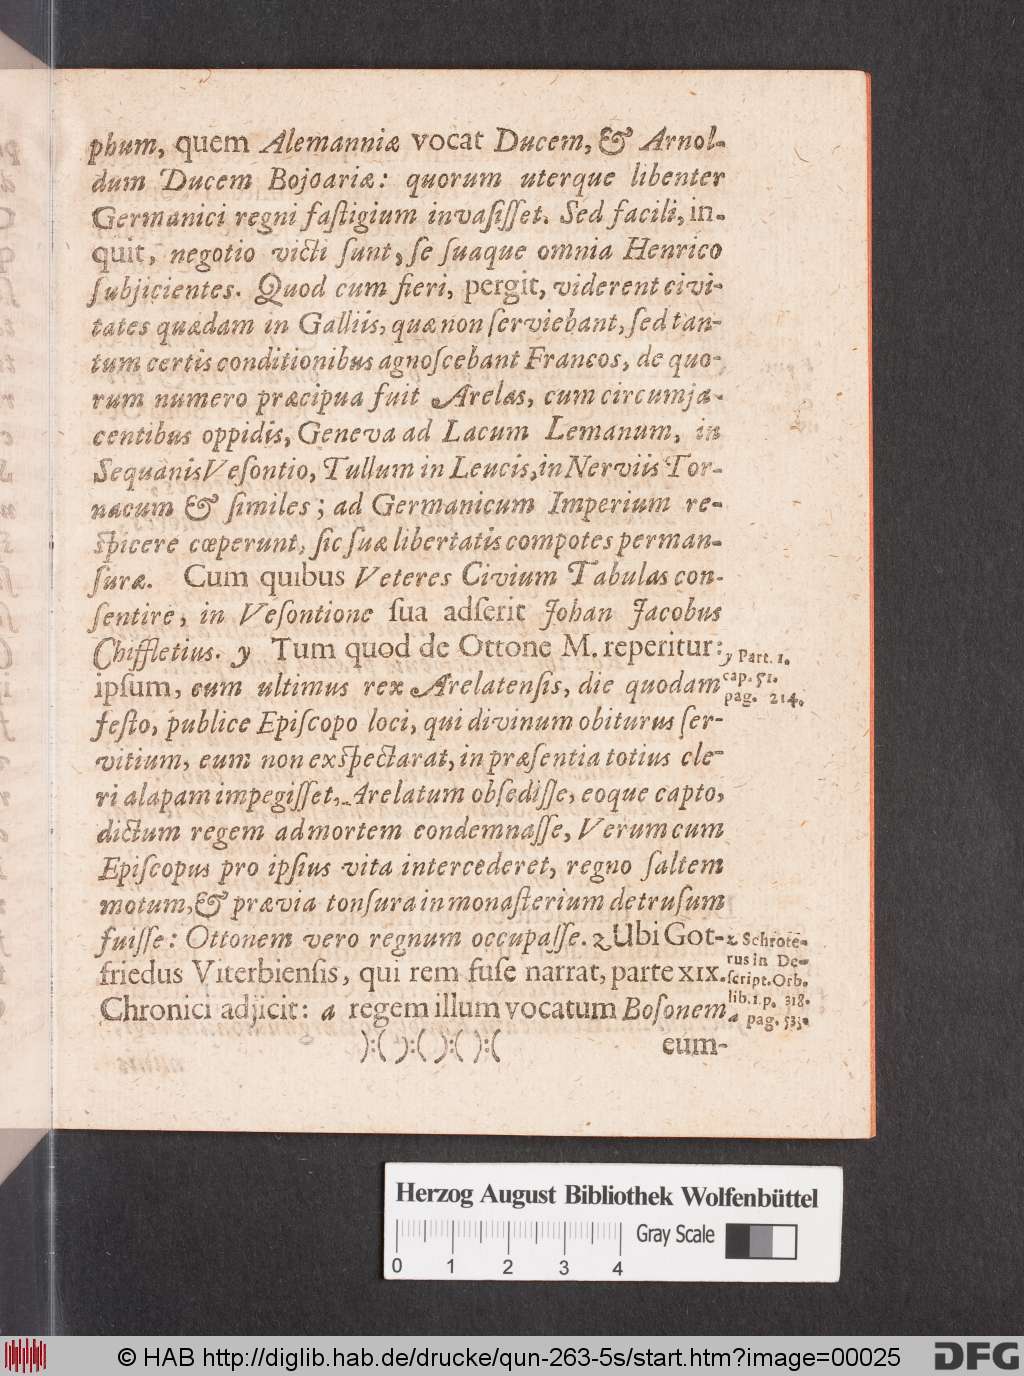 phum, quem Alemanniæ vocat Ducem, & Arnol-
dum Ducem Bojoariæ: quorum uterque libenter
Germanici regni faſtigium invaſiſſet. Sed facili, in-
quit, negotio victi ſunt, ſe ſuaque omnia Henrico
ſubjicientes. Quod cum fieri, pergit, viderent civi-
tates quædam in Galliis, quæ non ſerviebant, ſed tan-
tum certis conditionibus agnoſcebant Francos, de quo-
rum numero præcipua fuit Arelas, cum circumja-
centibus oppidis, Geneva ad Lacum Lemanum, in
Sequanis Veſontio, Tullum in Leucis, in Nerviis Tor-
nacum & ſimiles; ad Germanicum Imperium re-
ſpicere cœperunt, ſic ſuæ libertatis compotes perman-
ſuræ. Cum quibus Veteres Civium Tabulas con-
ſentire, in Veſontione ſua adſerit Johan Jacobus
Chiffletius. y Tum quod de Ottone M. reperitur:
ipſum, eum ultimus rex Arelatenſis, die quodam
feſto, publice Epiſcopo loci, qui divinum obiturus ſer-
vitium, eum non exſpectarat, in præſentia totius cle-
ri alapam impegiſſet, Arelatum obſediſſe, eoque capto,
dictum regem ad mortem condemnaſſe, Verum cum
Epiſcopus pro ipſius vita intercederet, regno ſaltem
motum, & prævia tonſura in monaſterium detruſum
fuiſſe: Ottonem vero regnum occupaſſe. z Ubi Got-
friedus Viterbienſis, qui rem fuſe narrat, parte XIX.
Chronici adjicit: a regem illum vocatum Boſonem
):( ):( ):( ):(
eum-
y Part. 1.
cap. 51.
pag. 214.
z Schrote-
rus in De-
ſcript. Orb.
lib. 1. p. 318.
a pag. 533.
Herzog August Bibliothek Wolfenbüttel
Gray Scale
0 1 2 3 4
© HAB http://diglib.hab.de/drucke/qun-263-5s/start.htm?image=00025
DFG